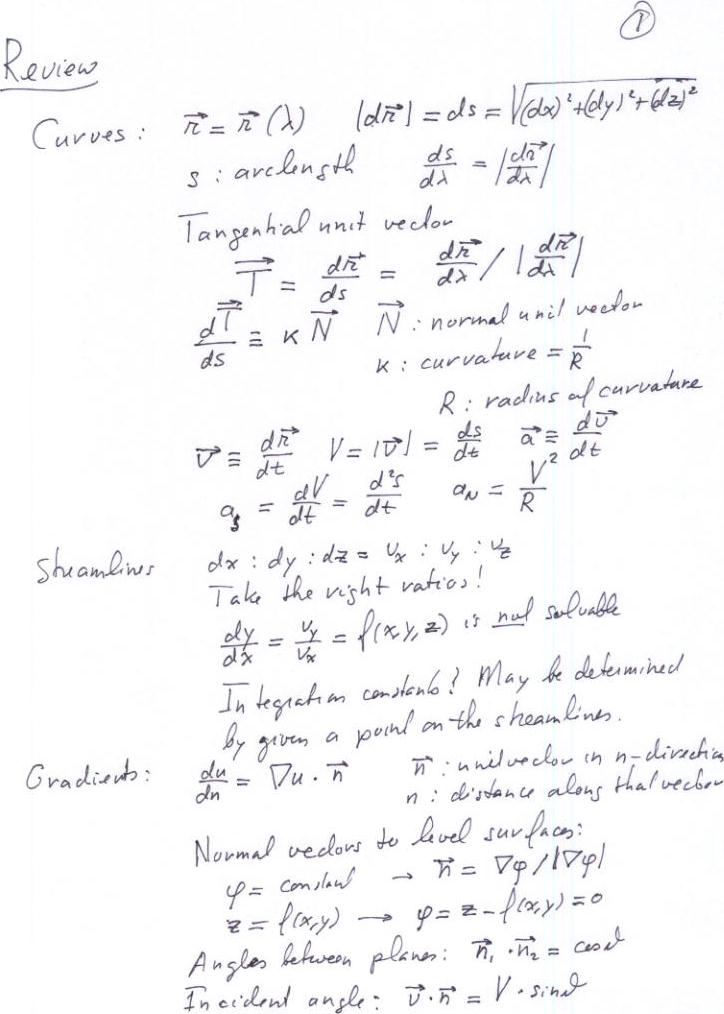 ①
Review
Curves: r⃗ = r⃗(λ) |dr⃗| = ds = √((dx)²+(dy)²+(dz)²)
s : arclength ds/dλ = |dr⃗/dλ|
Tangential unit vector
T⃗ = dr⃗/ds = dr⃗/dλ / |dr⃗/dλ|
dT⃗/ds ≡ κ N⃗ N⃗ : normal unit vector
κ : curvature = 1/R
R : radius of curvature
v⃗ ≡ dr⃗/dt V = |v⃗| = ds/dt a⃗ ≡ dv⃗/dt
a_s = dV/dt = d²s/dt a_N = V²/R
Streamlines dx : dy : dz = v_x : v_y : v_z
Take the right ratios!
dy/dx = v_y/v_x = f(x,y,z) is not solvable
Integration constants? May be determined
by given a point on the streamlines.
Gradients: du/dn = ∇u · n⃗ n⃗ : unit vector in n-direction
n : distance along that vector
Normal vectors to level surfaces:
φ = constant → n⃗ = ∇φ/|∇φ|
z = f(x,y) → φ = z - f(x,y) = 0
Angles between planes: n⃗₁ · n⃗₂ = cosα
Incident angle: v⃗ · n⃗ = V · sinα